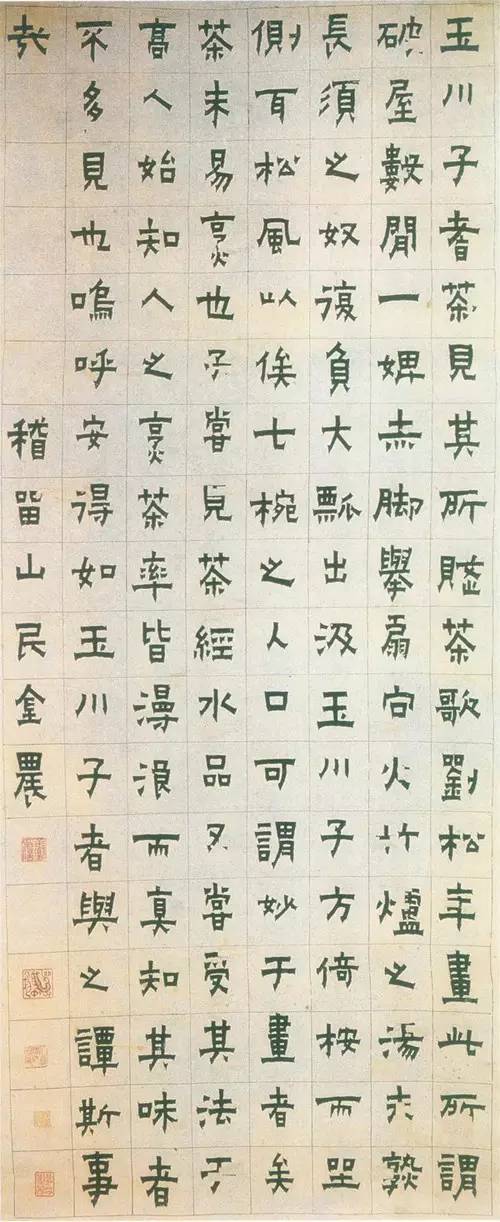 玉川子耆茶見其所賦茶歌劉松年畫此所謂
破屋數間一婢赤脚舉扇向火竹爐之湯未熟
長須之奴復負大瓢出汲玉川子方倚桉而坐
側耳松風以俟七椀之入口可謂妙于畫者矣
茶未易烹也予嘗見茶經水品又嘗受其法于
高人始知人之烹茶率皆漫浪而真知其味者
不多見也嗚呼安得如玉川子者與之譚斯事
哉
稽留山民金農